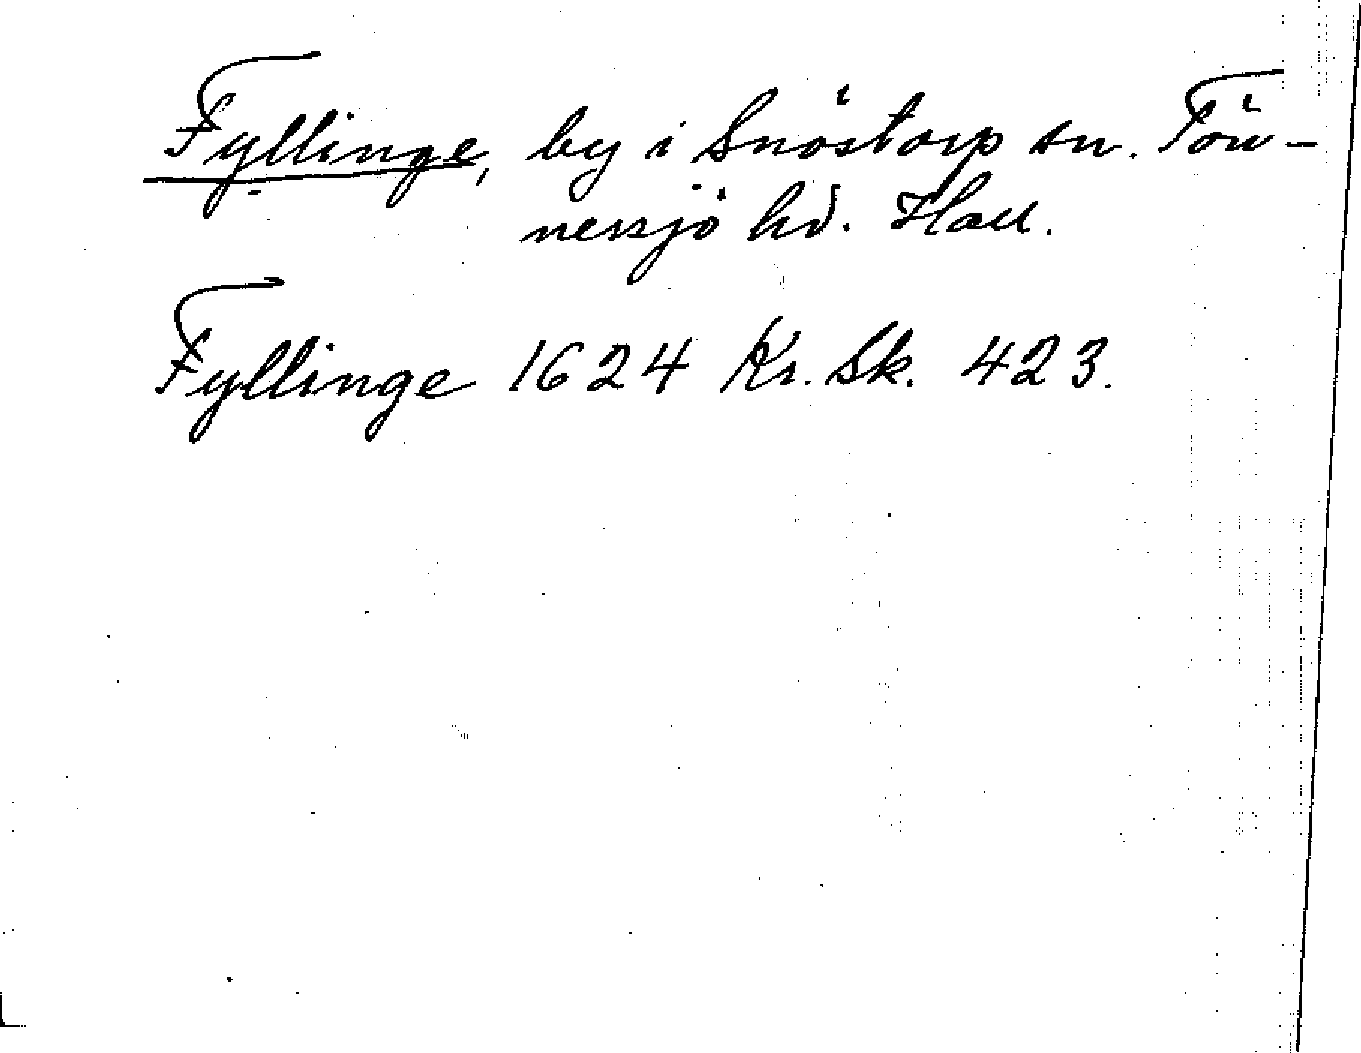 Fyllinge, by i Snöstorp sn. Tön-
nersjö hd. Hall.
Fyllinge 1624 Kr. Sk. 423.